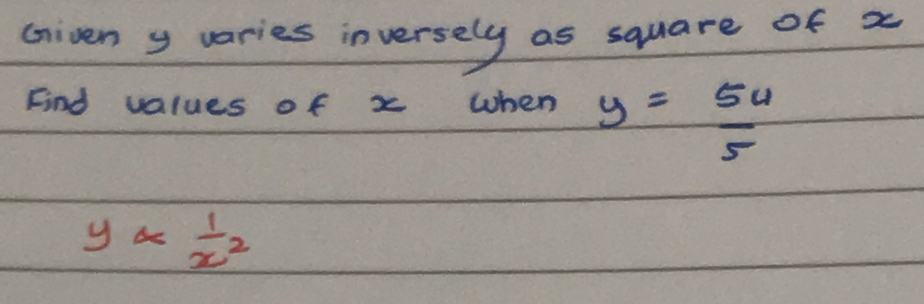 Given y varies inversely as square of x
Find values of x when y = 54/5
y ∝ 1/x²